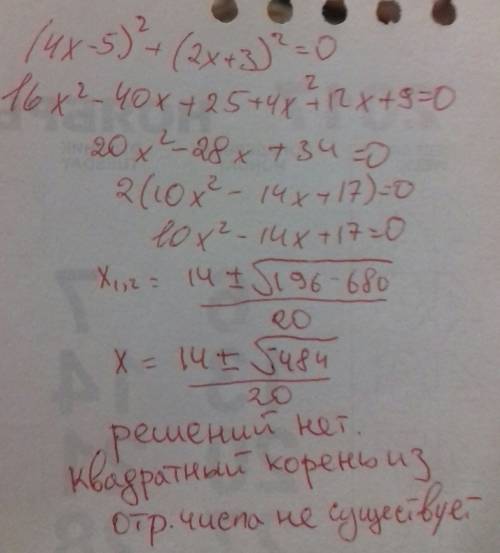 (4x-5)²+(2x+3)²=0
16x²-40x+25+4x²+12x+9=0
20x²-28x+34=0
2(10x²-14x+17)=0
10x²-14x+17=0
x₁,₂ = 14±√196-680
20
x = 14±√-484
20
решений нет.
квадратный корень из
отр. числа не существует